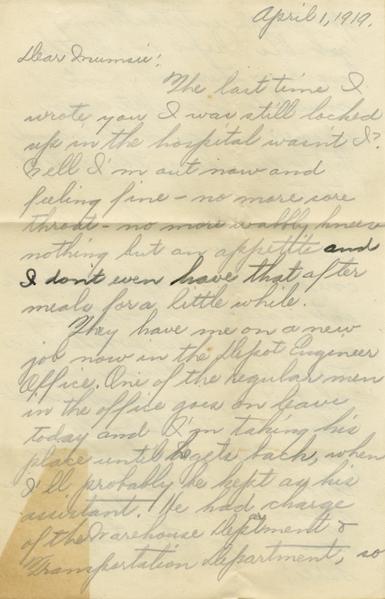 April 1, 1919.
Dear Mumsie:
The last time I
wrote you I was still locked
up in the hospital wasn't I?
Well I'm out now and
feeling fine - no more sore
throat - no more wabbly knees
nothing but an appetite and
I don't even have that after
meals for a little while.
They have me on a new
job now in the Depot Engineer
Office. One of the regular men
in the office goes on leave
today and I'm taking his
place until he gets back, when
I'll probably be kept as his
assistant. He had charge
of the Warehouse Department &
Transportation Department, so